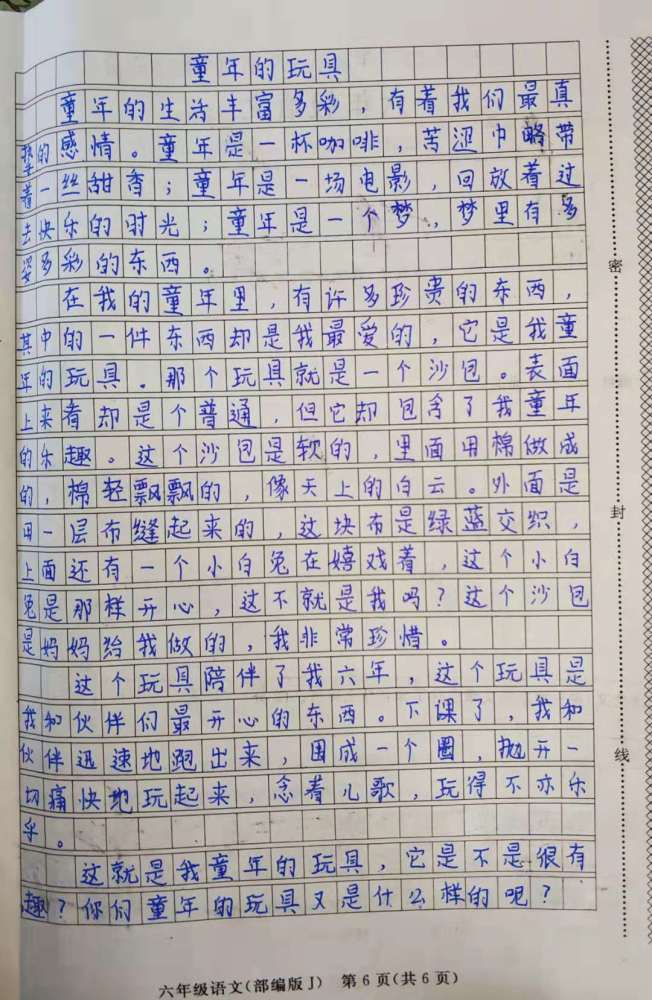 童年的玩具
童年的生活丰富多彩，有着我们最真
挚的感情。童年是一杯咖啡，苦涩中略带
着一丝甜香；童年是一场电影，回放着过
去快乐的时光；童年是一个梦，梦里有多
姿多彩的东西。
在我的童年里，有许多珍贵的东西，
其中的一件东西却是我最爱的，它是我童
年的玩具。那个玩具就是一个沙包。表面
上来看却是个普通，但它却包含了我童年
的乐趣。这个沙包是软的，里面用棉做成
的，棉轻飘飘的，像天上的白云。外面是
用一层布缝起来的，这块布是绿蓝交织，
上面还有一个小白兔在嬉戏着，这个小白
兔是那样开心，这不就是我吗？这个沙包
是妈妈给我做的，我非常珍惜。
这个玩具陪伴了我六年，这个玩具是
我和伙伴们最开心的东西。下课了，我和
伙伴迅速地跑出来，围成一个圈，抛开一
切痛快地玩起来，念着儿歌，玩得不亦乐
乎。
这就是我童年的玩具，它是不是很有
趣？你们童年的玩具又是什么样的呢？
密
封
线
六年级语文(部编版J) 第6页(共6页)